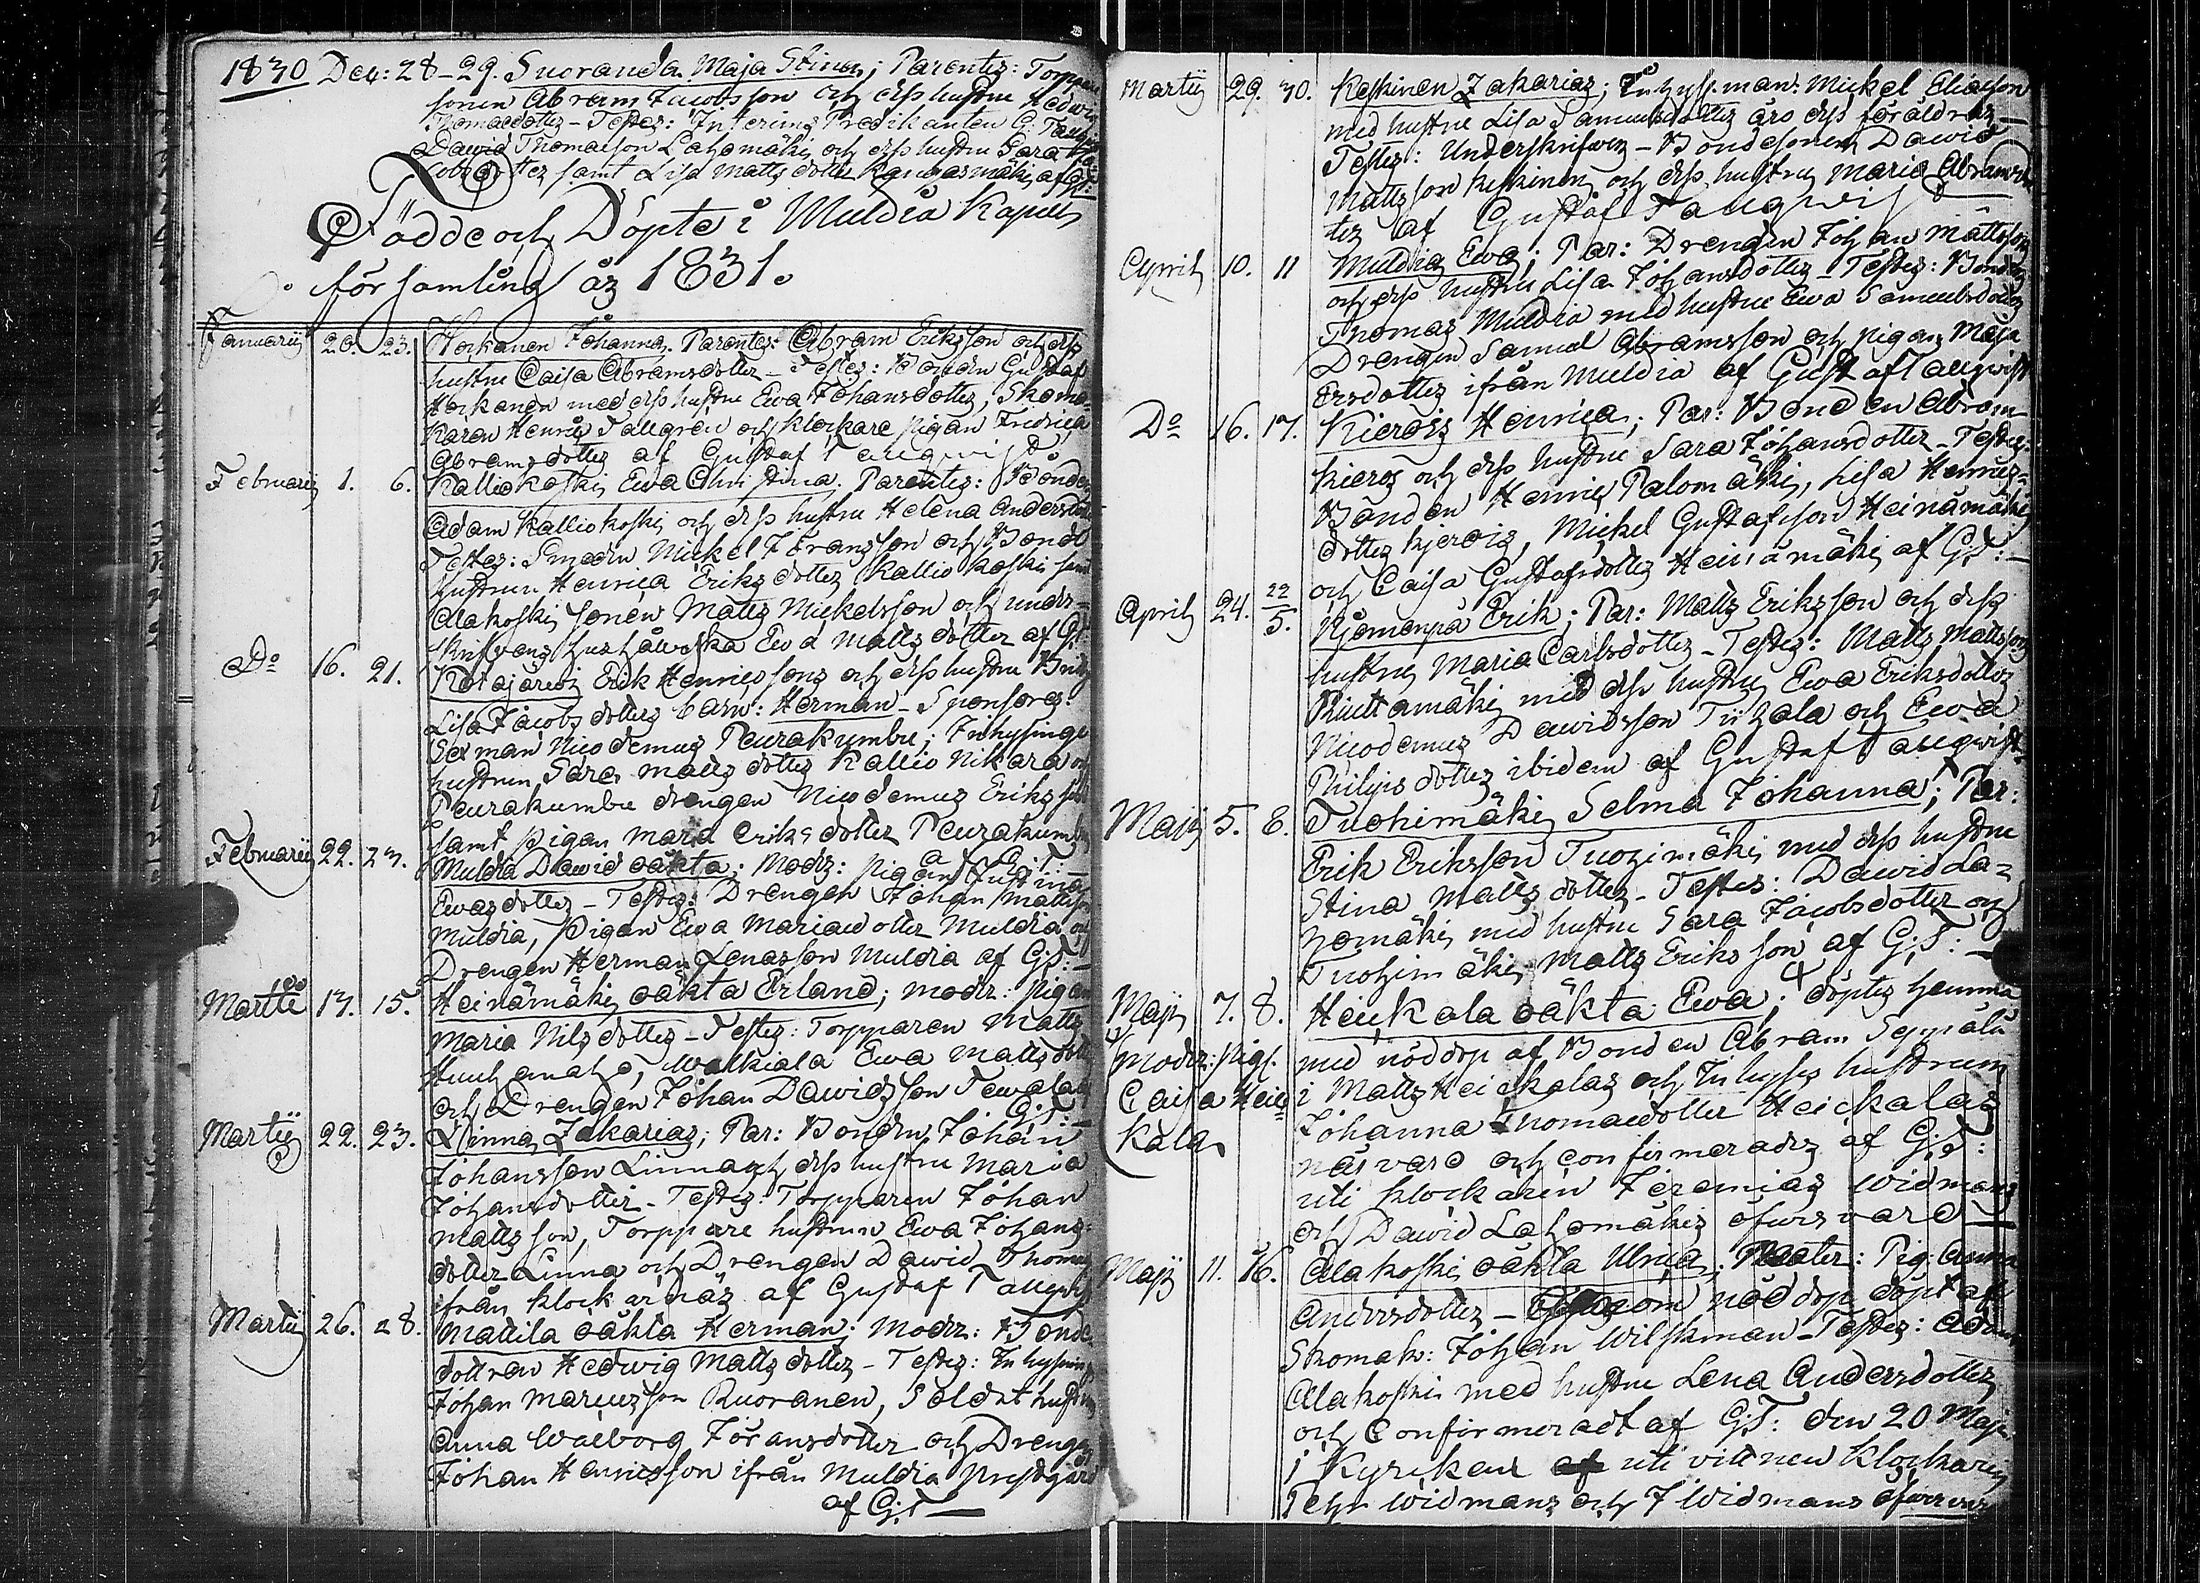 1830 Dec: 28-29. Suoranda Maja Stina; Parentes: Torppare
sonen Abram Jacobsson och dess hustru Hedwig
Thomasdotter - Testes: Interims Predikanten G: Tallqvist
David Thomasson Lahomäki och dess hustru Sara Ja-
cobsdotter samt Lisa Matts dotter Kangasmäki af GT:
Födde och Döpte i Muldia Kapells
församling år 1831.
Januarii 20. 23. Hockanen Johanna. Parentes: Abram Eriksson och dess
hustru Caisa Abramsdotter - Testes: Bonden Gustaf
Hockanen med dess hustru Ewa Johansdotter, Skoma-
karen Henric Tallgrén och Klockare pigan Fredrica
Abramsdotter af Gustaf Tallqvist.
Februarii 1. 6. Kalliokoski Ewa Christina. Parentes: Bonden
Adam Kalliokoski och dess hustru Helena Andersdotter
Testes: Smeden Mickel Fransson och Bonde
hustrun Henrica Eriks dotter Kalliokoski samt
Alakoski sonen Matts Mickelsson och under-
skrifvens hushålwska Ewa Matts dotter af GT
Do 16. 21. Kotajärwi Erik Henricssons och dess hustru Brita
Lisa Jacobs dotters barn: Herman - Sponsores:
Sexman Nicodemus Peurakumbu; Inhysinge
hustrun Sara Matts dotter Kallio Nikara och
Peurakumbu drengen Nicodemus Eriksson
samt Pigan Maria Eriks dotter Peurakumbu
Februarii 22. 27. Muldia David oäkta; Modr: Pigan Justina
Ewas dotter - Testes: Drengen Johan Mattsson
Muldia, Pigan Ewa Mariæ dotter Muldia och
Drengen Herman Lenasson Muldia af G:T: -
Martii 13. 15. Heinämäki oäkta Erland; Modr: Pigan
Maria Nils dotter - Testes: Torpparen Matts
Huuhanaho, Walkiala Ewa Matts dotter
och Drengen Johan Davidsson Tewala
G:T: -
Martii 22. 23. Linna Zakarias; Par: Bonden Johan
Johansson Linna och dess hustru Maria
Johansdotter - Testes: Torpparen Johan
Mattsson, Torppare hustrun Ewa Johans-
dotter Linna och Drengen David Thomas
ifrån Klockarnäs af Gustaf Tallqvist
Martii 26. 28. Mattila oäkta Herman; Modr: Bonde
dottren Hedwig Matts dotter - Testes: Inhysing
Johan Marcusson Ruoranen, Soldat hustru
Anna Walborg Göransdotter och Drengen
Johan Henricsson ifrån Muldia Prestgård
af G:T -
Martii 29. 30. Keskinen Zakarias; Inhyss. man: Mickel Eliasson
med hustru Lisa Samuelsdotter äro dess föräldrar -
Testes: Underskrifwen - Bondesonen David
Mattsson Keskinen och dess hustru Maria Abramsdot-
ter af Gustaf Tallqvist
Aprill 10. 11 Muldia Ewa; Par: Drengen Johan Mattsson
och dess hustru Lisa Johansdotter - Testes: Bonden
Thomas Muldia med hustru Ewa Samuelsdotter
Drengen Samuel Abramsson och pigan Maja
Ersdotter ifrån Muldia af Gustaf Tallqvist
Do 16. 17. Kierois Henrica; Par: Bonden Abram
Kierois och dess hustru Sara Johansdotter - Testes:
Bonden Henric Palomäki, Lisa Henrics-
dotter Kjerois, Mickel Gustafsson Heinämäki
och Caisa Gustafsdotter Heinämäki af G:T: -
April 24. 22/5. Kjömenpä Erik; Par: Matts Eriksson och dess
hustru Maria Carlsdotter - Testes: Matts Mattsson
Riuttamäki med dess hustru Ewa Eriksdotter
Nicodemus Davidsson Tiihala och Ewa
Philips dotter ibidem af Gustaf Tallqvist
Maji 5. 8. Tuohimäki Selma Johanna; Par:
Erik Eriksson Tuohimäki med dess hustru
Stina Matts dotter - Testes: David La-
homäki med hustru Sara Jacobsdotter och
Tuohimäki Matts Eriksson af G:T: -
Maji 7. 8. Heickala oäkta Ewa; döptes hemma
Modr: Pig.
Caisa Heic-
kala
med nöddop af Bonden Abram Seppälä
i Matts Heickalas och Inhyses hustrun
Johanna Thomasdotter Heickalas
närvaro och confirmerades af G:T:
uti Klockaren Jeremias Widmans
och David Lahomäkis öfwersvaro
Maji 11. 16. Alakoski oäkta Ulrica; Mater: Pig. Anna
Andersdotter - genom nöddop döpt af
Skomak: Johan Wilskman - Testes: Adam
Alakoski med hustru Lena Andersdotter
och Confirmeradt af G:T: den 20 Maji
i Kyrkan af uti vittnen Klockaren
Jehr Widmans och J Widmans öfwervaro